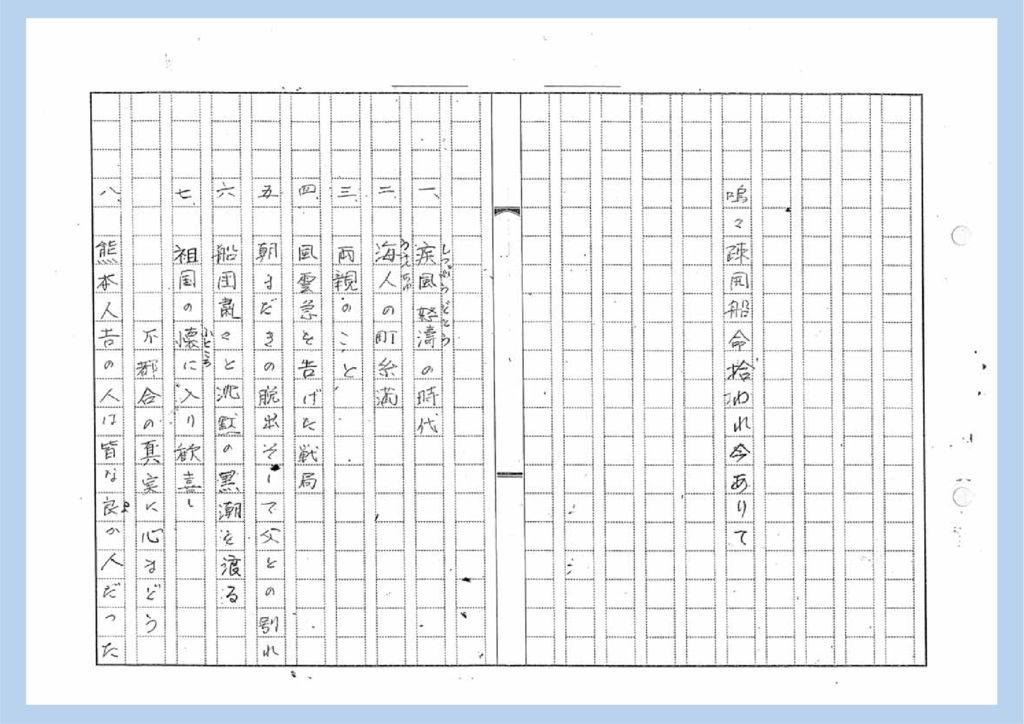 鳴々疎開船命拾われ今ありて
一、疾風怒濤の時代
しっぷうどとう
二、海人の町糸満
三、両親のこと
四、風雲急を告げた戦局
五、朝まだきの脱出そして父との別れ
六、船団粛々と沈黙の黒潮を渡る
七、祖国の懐に入り歓喜し
ふところ
不都合の真実に心まどう
八、熊本人吉の人は皆な良か人だった
よ